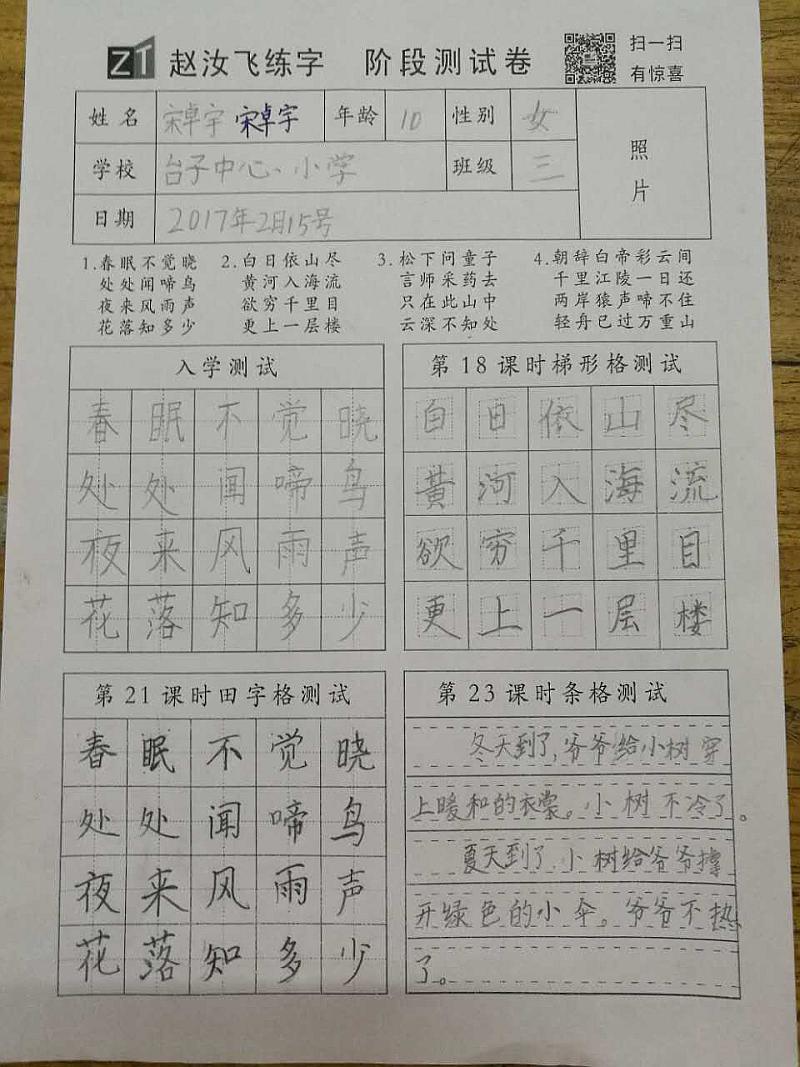 ZT 赵汝飞练字 阶段测试卷 扫一扫
有惊喜
姓名 宋卓宇 宋卓宇 年龄 10 性别 女
照片
学校 台子中心、小学 班级 三
日期 2017年2月15号
1.春眠不觉晓
处处闻啼鸟
夜来风雨声
花落知多少
2.白日依山尽
黄河入海流
欲穷千里目
更上一层楼
3.松下问童子
言师采药去
只在此山中
云深不知处
4.朝辞白帝彩云间
千里江陵一日还
两岸猿声啼不住
轻舟已过万重山
入学测试
春眠不觉晓
处处闻啼鸟
夜来风雨声
花落知多少
第18课时梯形格测试
自日依山尽
黄河入海流
欲穷千里目
更上一层楼
第21课时田字格测试
春眠不觉晓
处处闻啼鸟
夜来风雨声
花落知多少
第23课时条格测试
冬天到了,爷爷给小树穿
上暖和的衣裳。小树不冷了。
夏天到了,小树给爷爷撑
开绿色的小伞。爷爷不热
了。